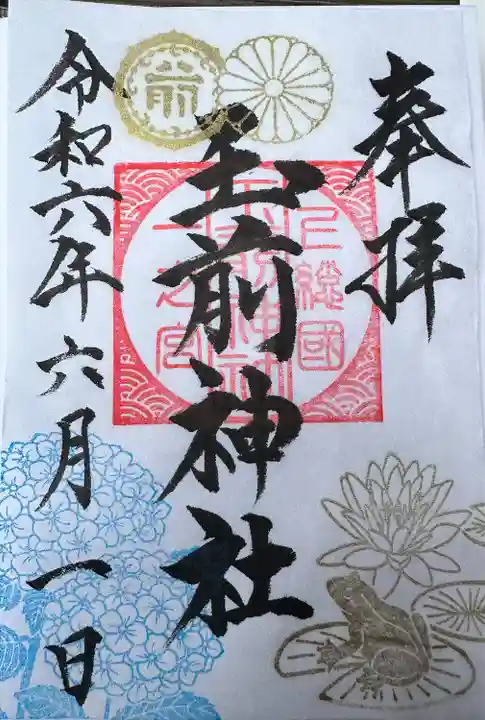 奉拝
上總國
玉前神社
一之宮
玉前神社
令和六年六月一日
前